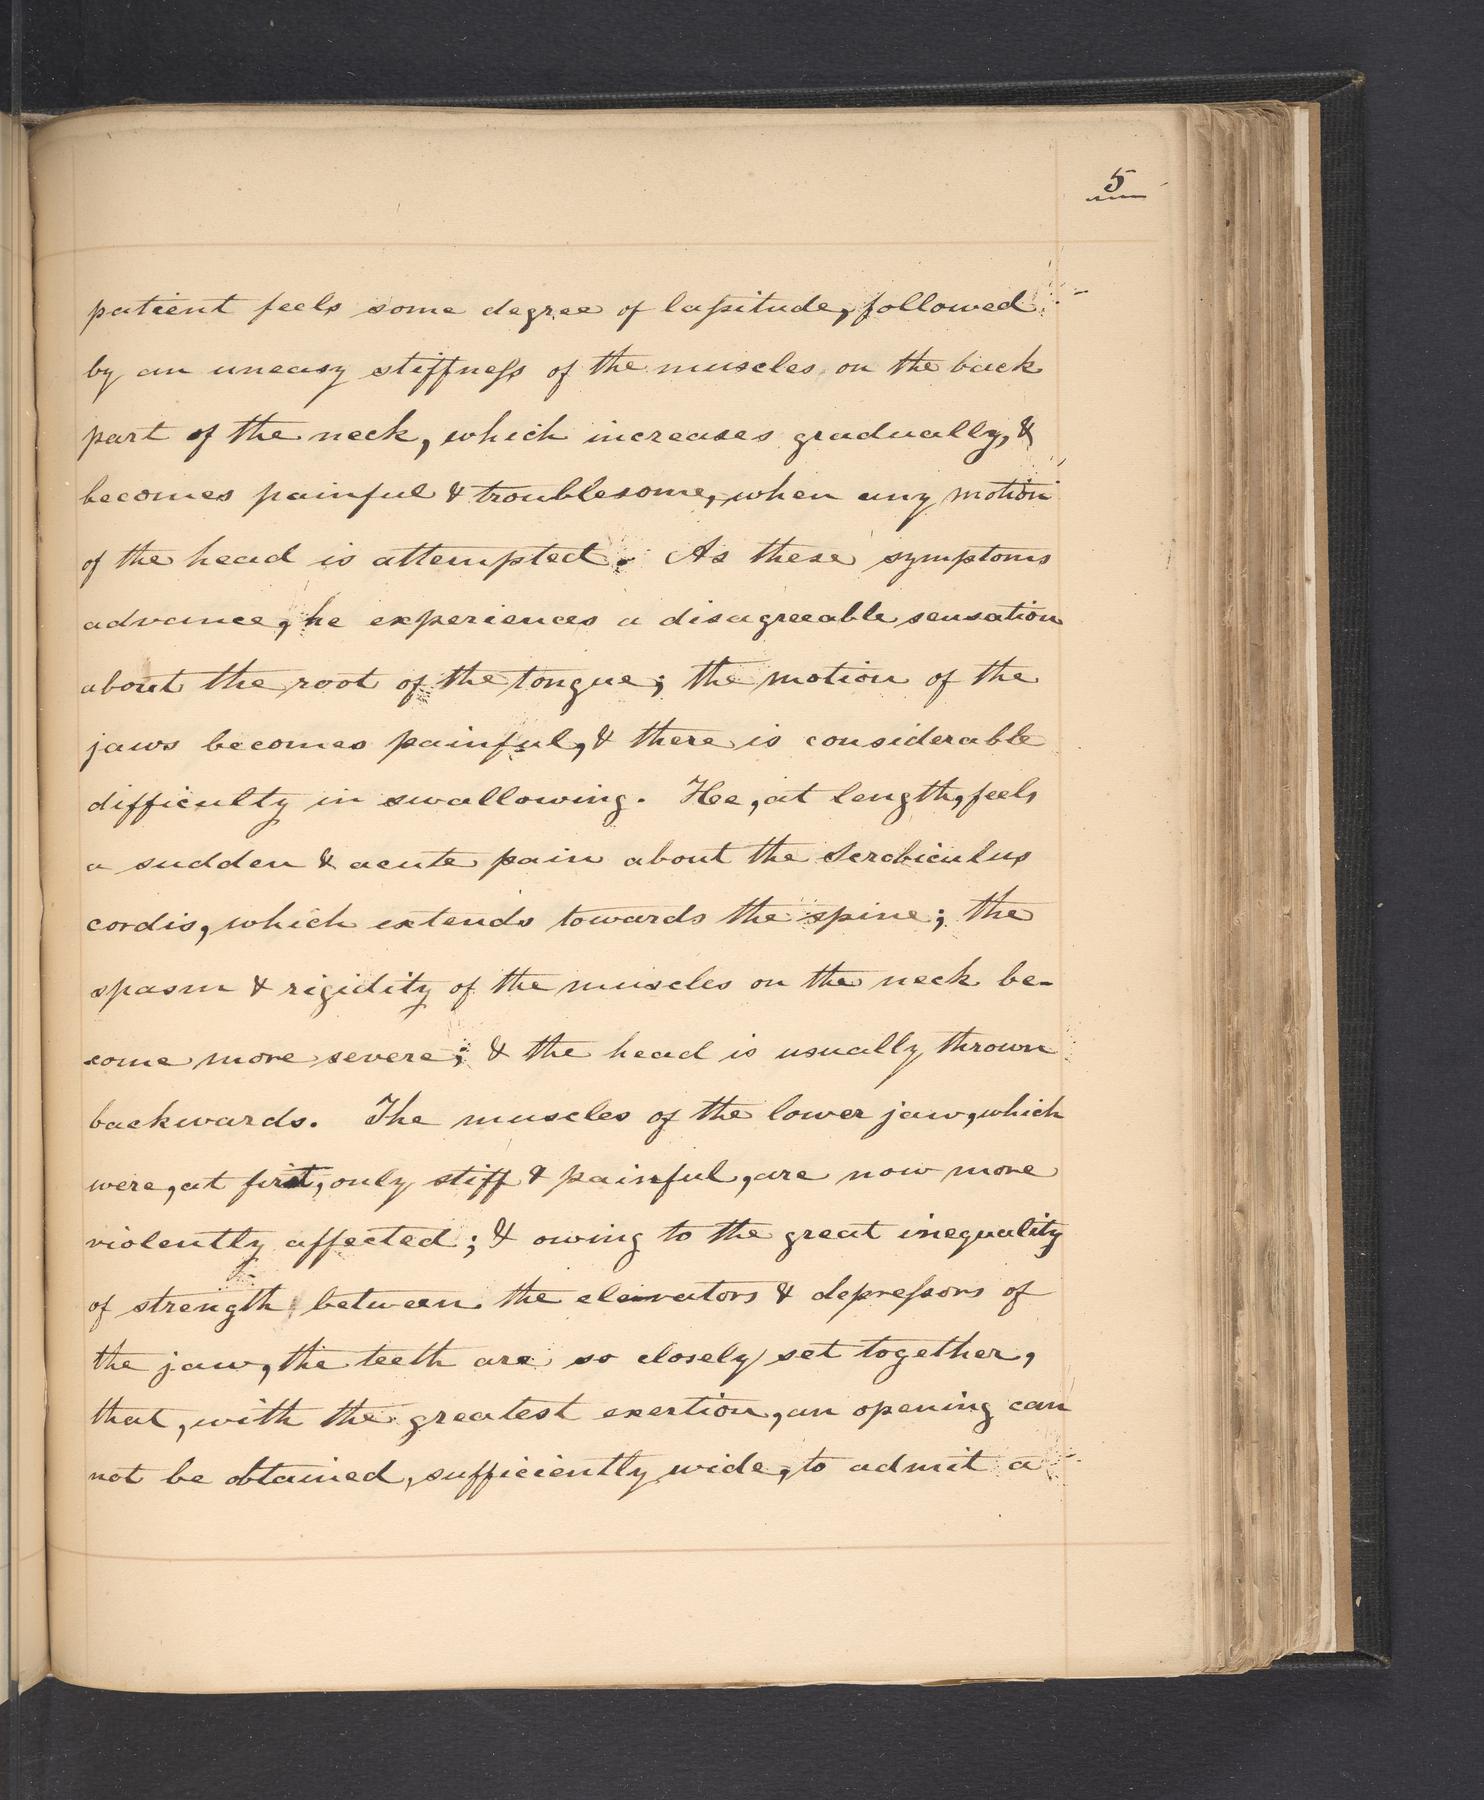 5
patient feels some degree of laſsitude, followed
by an uneasy stiffneſs of the muscles on the back
part of the neck, which increases gradually, &
becomes painful & troublesome, when any motion
of the head is attempted. As these symptoms
advance, he experiences a disagreeable sensation
about the root of the tongue; the motion of the
jaws becomes painful, & there is considerable
difficulty in swallowing. He, at length, feels
a sudden & acute pain about the Scrobiculus
cordis, which extends towards the spine; the
spasm & rigidity of the muscles on the neck be-
come more severe; & the head is usually thrown
backwards. The muscles of the lower jaw, which
were, at first, only stiff & painful, are now more
violently affected; & owing to the great inequality
of strength between the elevators & depreſsors of
the jaw, the teeth are so closely set together,
that, with the greatest exertion, an opening can
not be obtained, sufficiently wide, to admit a